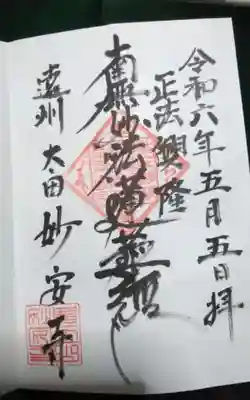 令和六年五月五日拝
正法興隆
南無妙法蓮華経
遠州 大田妙安寺